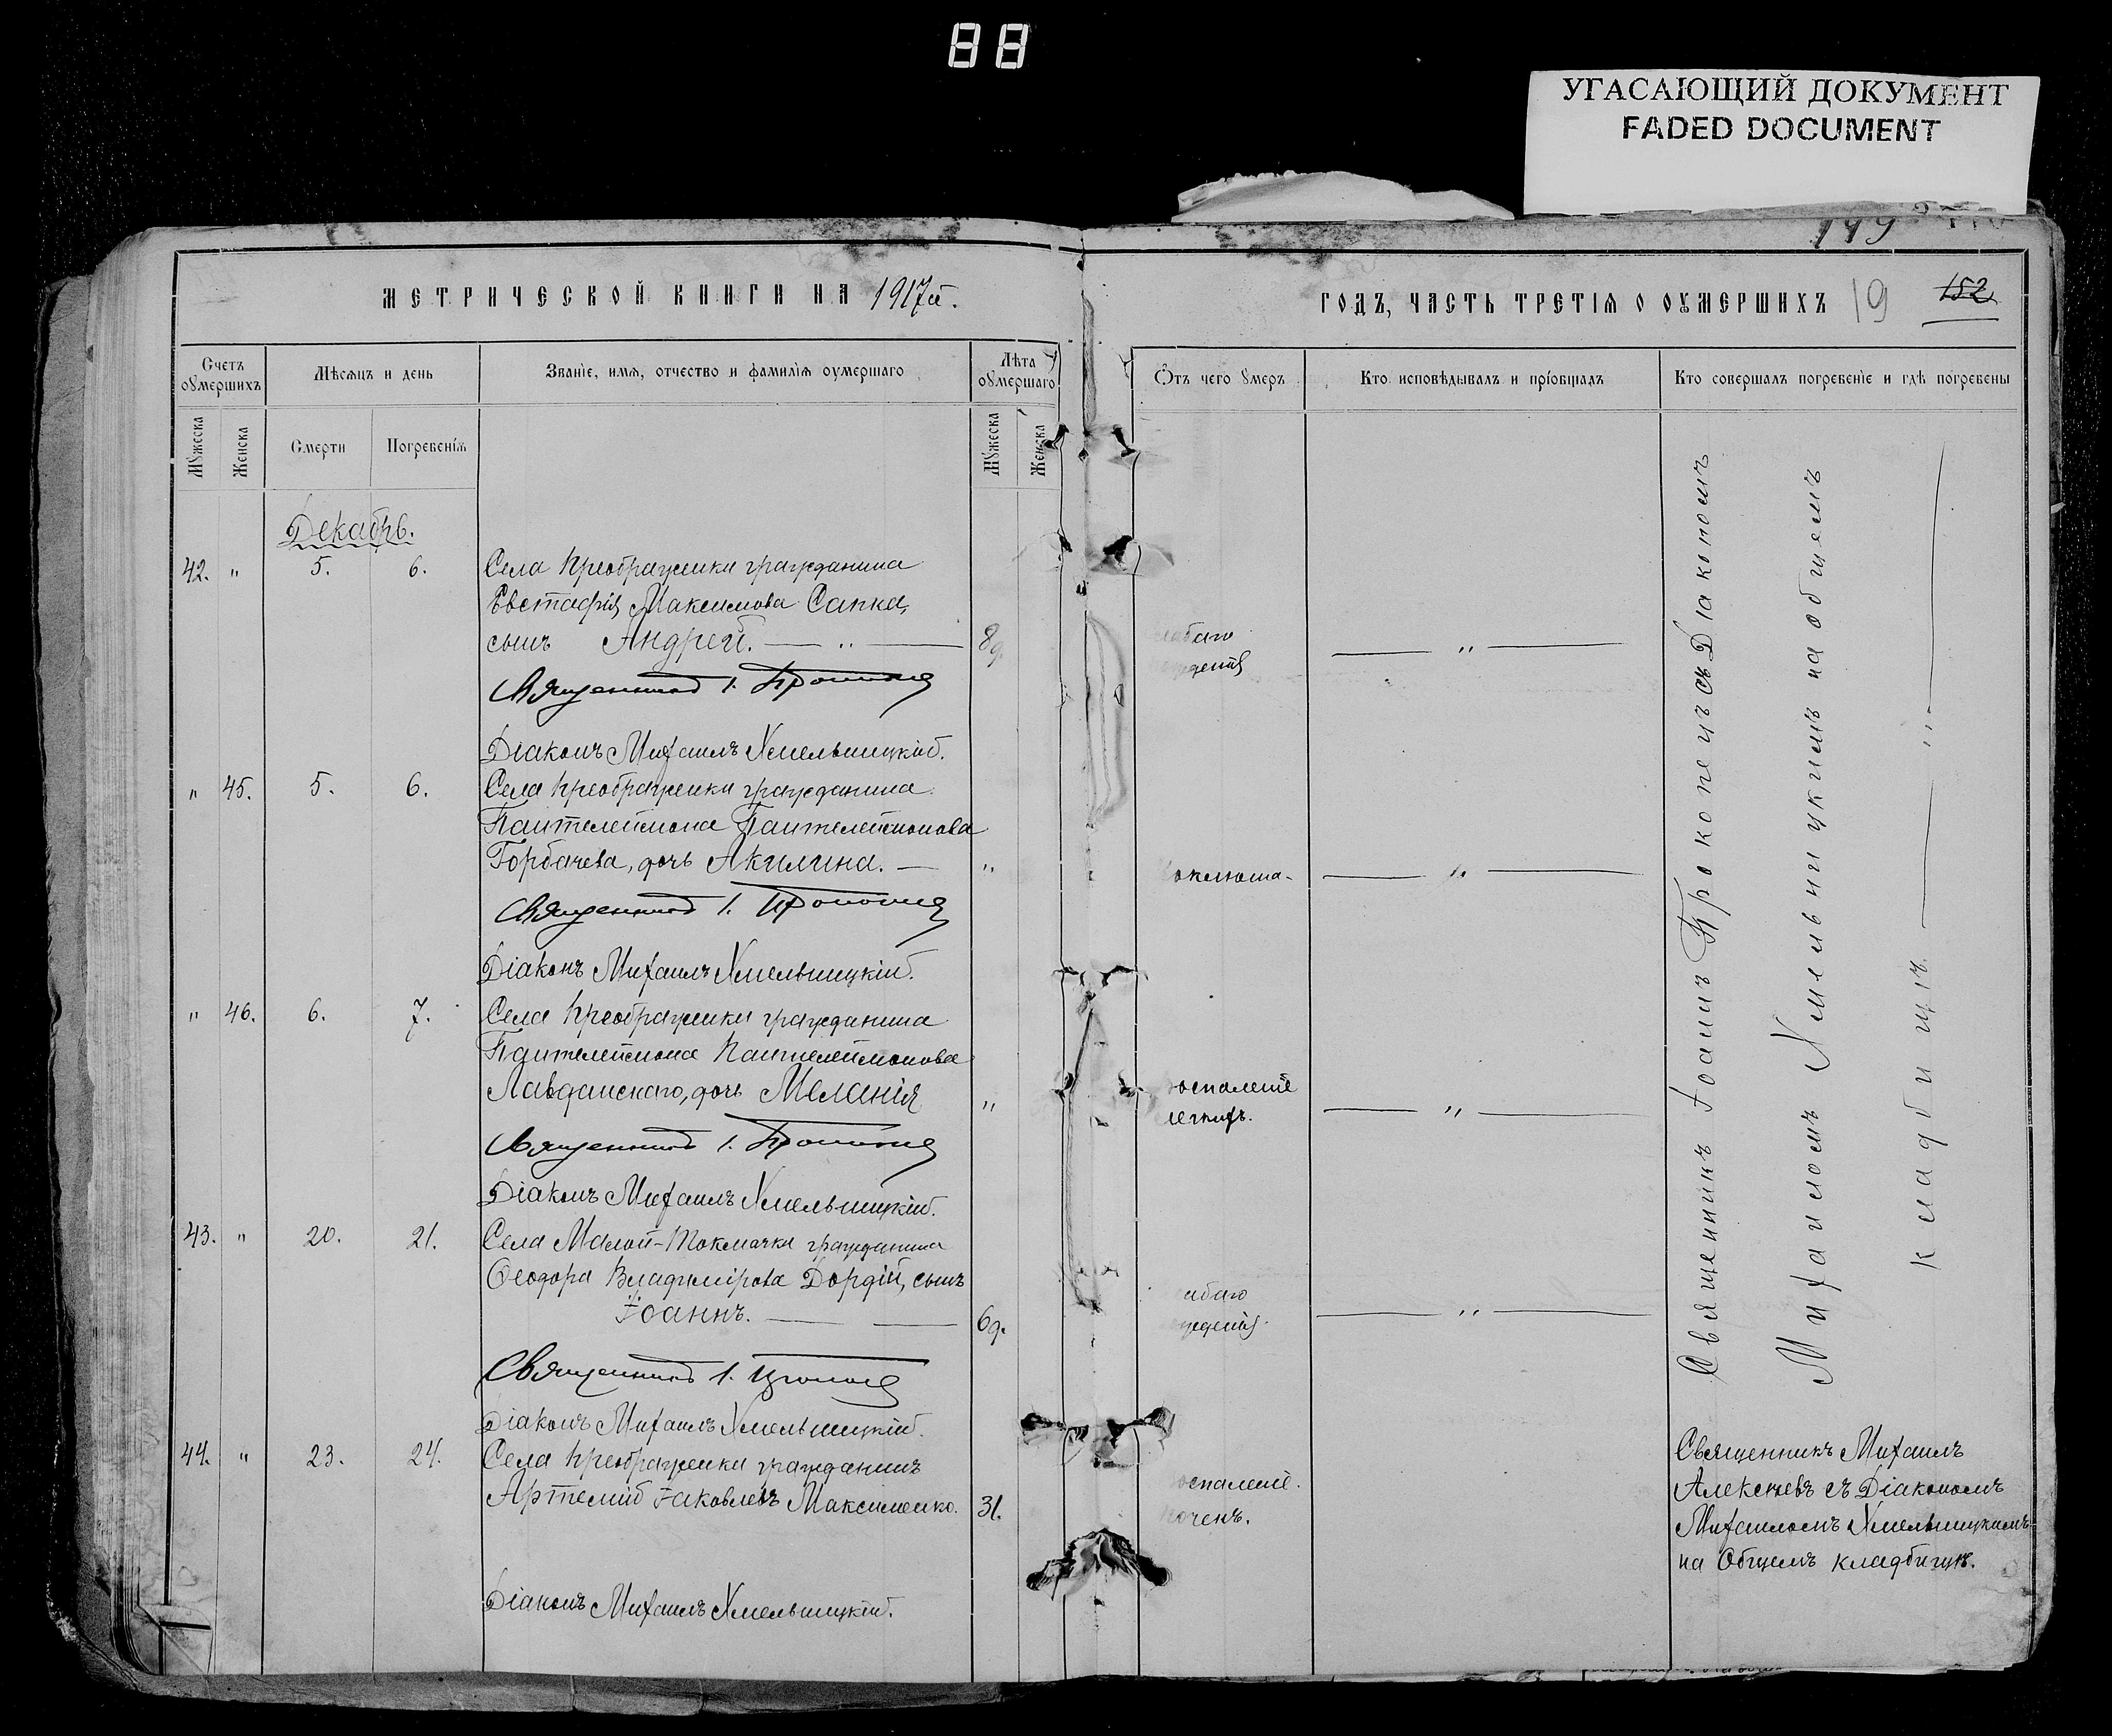 88
УГАСАЮЩИЙ ДОКУМЕНТ
FADED DOCUMENT
149
МЕТРИЧЕСКОЙ КНИГИ НА 1917й.
ГОДЪ, ЧАСТЬ ТРЕТІЯ О ОУМЕРШИХЪ 19 152
Счетъ оумершихъ
Мѣсяцъ и день
Званіе, имя, отчество и фамилія оумершаго
Лѣта оумершаго
Ѿтъ чего умеръ
Кто исповѣдывалъ и пріобщалъ
Кто совершалъ погребеніе и гдѣ погребены
Мужеска
Женска
Смерти
Погребенія
Мужеска
Женска
Декабрь.
42. " 5. 6. Села Преображенки гражданина
Евстафія Максимова Сапка,
сынъ Андрей. — " — 8д. слабаго — " —
рожденія
Священникъ І. Прокопецъ
Діаконъ Михаилъ Хмельницкій.
" 45. 5. 6. Села Преображенки гражданина
Пантелеимона Пантелеимонова
Горбачева, дочь Акилина. — " коклюша — " —
Священникъ І. Прокопецъ
Діаконъ Михаилъ Хмельницкій.
" 46. 6. 7. Села Преображенки гражданина
Пантелеимона Пантелеимонова
Лавданскаго, дочь Меланія " воспаленіе
легкихъ. — " —
Священникъ І. Прокопецъ
Діаконъ Михаилъ Хмельницкій.
43. " 20. 21. Села Малой-Токмачки гражданина
Ѳеодора Владимірова Дордій, сынъ
Іоаннъ. — — 6д. слабаго — " —
рожденія
Священникъ І. Прокопецъ
Діаконъ Михаилъ Хмельницкій.
44. " 23. 24. Села Преображенки гражданинъ
Артемій Іаковлевъ Максименко. 31. воспаленіе
почекъ.
Діаконъ Михаилъ Хмельницкій.
Священникъ Іоаннъ Прокопецъ съ Діакономъ
Михаиломъ Хмельницкимъ на общемъ
кладбищѣ. — " —
Священникъ Михаилъ
Алексѣевъ съ Діакономъ
Михаиломъ Хмельницкимъ
на Общемъ кладбищѣ.